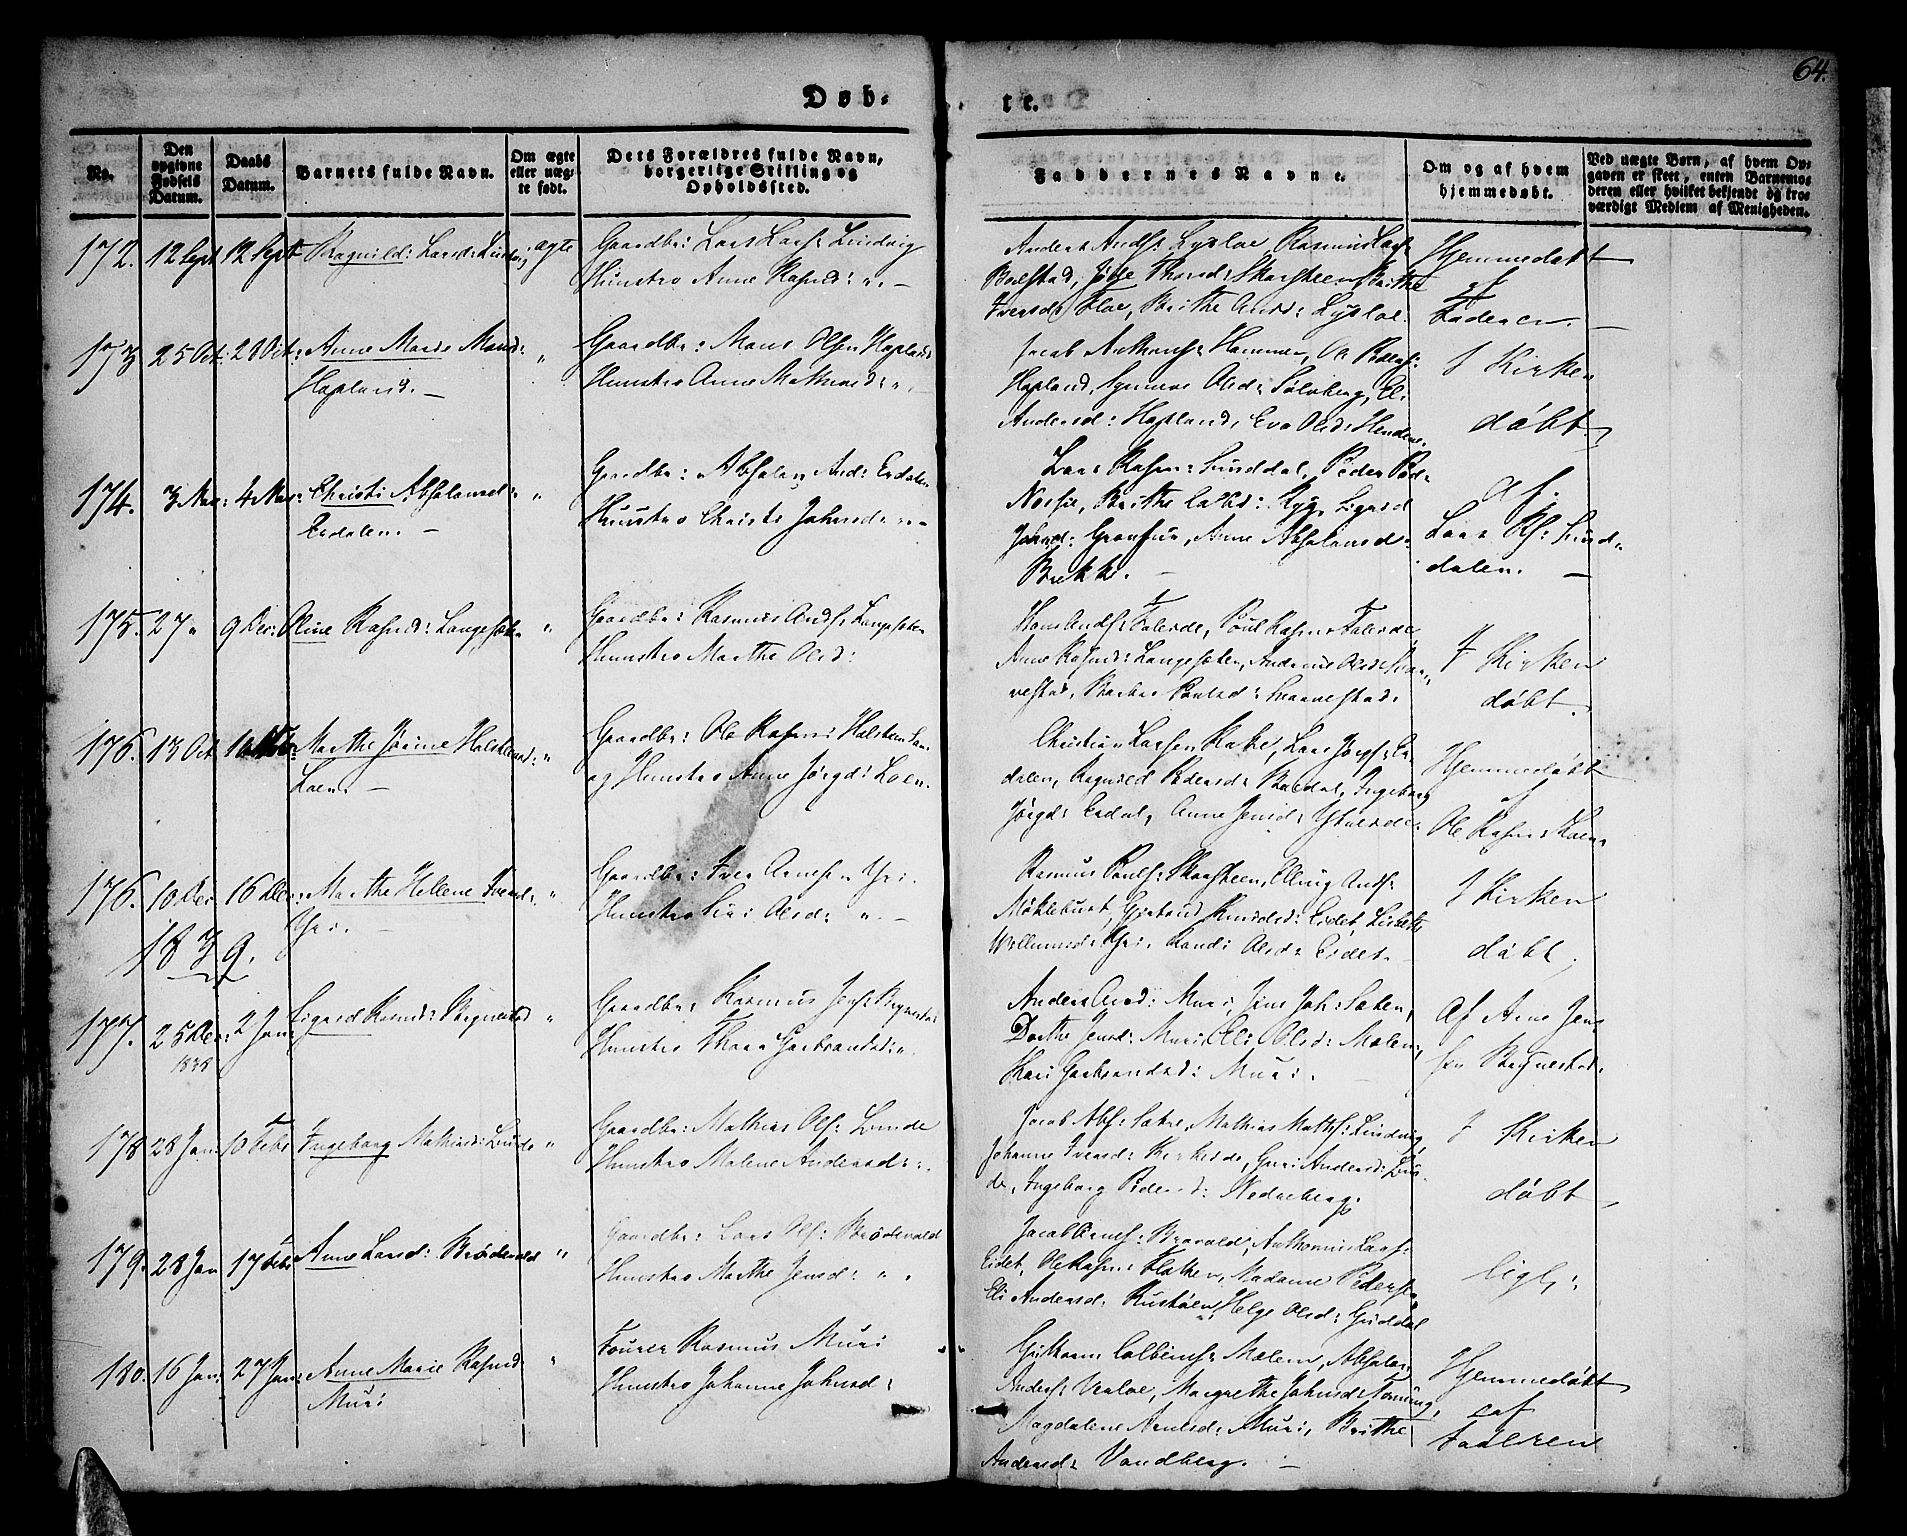 64.
Døb-
te.
No.
Den opgivne Fødsels Datum.
Daabs Datum.
Barnets fulde Navn.
Om ægte eller uægte født.
Dets Forældres fulde Navn, borgerlige Stilling og Opholdssted.
Faddernes Navne.
Om og af hvem hjemmedøbt.
Ved uægte Børn, af hvem Opgaven er skeet, enten Barnemoderen eller hvilket bekjendt og troværdigt Medlem af Menigheden.
172. 12 Sept 12 Sept Ragnild: Larsd: Lindvig ægte
Gaardbr: Lars Larss: Lindvig
Hunstro Anne Rasmd: " —
Anders Ands: Rasmus Larss:
Fverd: Floe, Brithe Andd: Lysloe.
Hjemmedøbt
af
Faderen. —
173 25 Oct. 28 Oct: Anne Marie Mons:
Hopland. —
"
Gaardbr: Mons Olsen Hopland
Hunstro Anne Mathiasd: "
Jacob Anthons: Hammer, Ole Peders:
Hopland, Synneve Olsd: Sølvberg, Eli
Andersd: Hopland, Eva Olsd: Henden.
I Kirken
døbt.
174. 3 Nov: 4 Nov: Christi Absalonsd: "
Erdalen. —
Gaardbr: Absalon And: Erdalen
Hunstro Christi Johnsd: " —
Lars Rasm: Sunddal, Peder Ped:
Brithe Ryg, Sigrid
Johnsd: Anne Absalonsd:
Brekke. —
af
Lars Rs: Sund-
dalen. —
175. 27 " 9 Dec: Oline Rasmd: Langesæter "
Gaardbr: Rasmus Ands: Langesæter
Hunstro Marthe Olsd:
Hans Ands: Faleide, Poul Rasm: Faleide,
Anne Rasmd: Langesæter,
I Kirken
døbt.
176. 13 Oct. Marthe Jørine
Loen. —
"
Gaardbr: Ole Rasms: Loen
og Hunstro Anne Jørgd: Loen.
Christian Larsen Rake, Lars Jørgs: Er-
dalen, Ragnild Pedersd: Ingeborg
Jørgd: Erdal, Anne Jensd:
Hjemmedøbt
af
Ole Rasms: Loen
176. 10 Dec 16 Dec: Marthe Hellene Iversd: "
Yri. —
Gaardbr: Iver Arnesen Yri.
Hunstro Siri Olsd: " —
Rasmus Pouls: Skarsteen, Elling Ands:
Møklebust, Gjertrud Knudsd: Eidet, Lisbeth
Willumsd: Yri, Randi Olsd: Eidet.
I Kirken
døbt.
1839.
177. 25 Dec: 2 Jan: Sigrid Rasmd: Rygnestad "
1838
Gaardbr: Rasmus Jens: Rygnestad
Hunstro Thora Gerbrandsd: "
Anders And: Muri, Jens Joh: Sæten,
Dorthe Jensd: Muri, Eli Olsd: Molen,
Kari Gerbrandsd: Muri. —
Af Arne Jen-
sen Rygnestad.
178 28 Jan: 10 Febr Ingeborg Mathiasd: Lunde "
Gaardbr: Mathias Ols: Lunde
Hunstro Malene Andersd: "
Jacob Abs: Sætre, Mathias Maths: Lindvig,
Johanne Iversd: Kirkeide, Guri Andersd: Lun-
de, Ingeborg Pedersd: Nedreberg.
I Kirken
døbt
179. 28 Jan 17 Febr Anne Larsd: Brødevold "
Gaardbr: Lars Ols: Brødevold
Hunstro Marthe Jensd: " "
Anthonius Lars:
Eidet, Ole Rasm: Flaten, Madame Pedersen
Eli Andersd: Rustøen, Helge Olsd: Guddal
lige:
180. 16 Jan: 27 Jan: Anne Marie Rasmd: "
Muri
Fourer Rasmus Muri
Hunstro Johanne Johnsd:
Guttorm Colbeins: Molen, Absalon
Anders: Venloe, Margrethe Johnsd: Tonning,
Magdalene Arntsd: Muri, Brithe
Andersd: Vandberg. —
Hjemmedøbt
af
Faderen